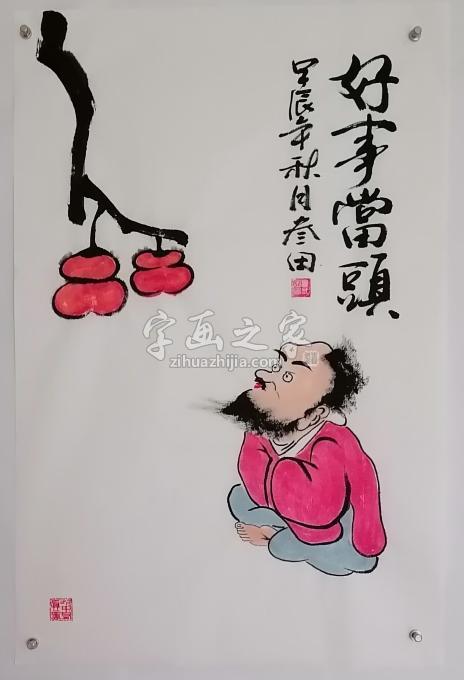 好事當頭
甲辰年秋月叁田
字画之家
zihuazhijia.com